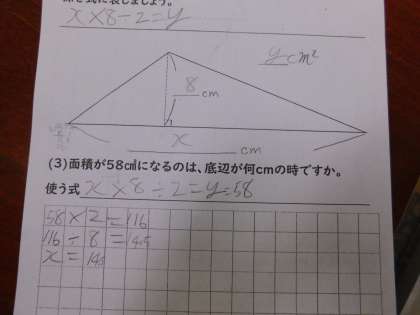 係を式に表しましょう。
x×8÷2=y
ycm²
8cm
x cm
(3)面積が58㎠になるのは、底辺が何cmの時ですか。
使う式 x×8÷2=y=58
58×2=116
116÷8=14.5
x=14.5